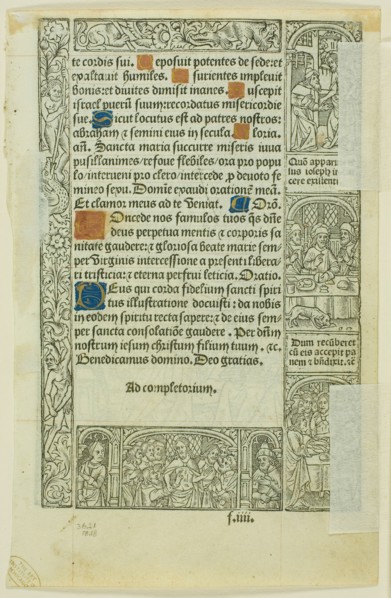 te cordis sui. Deposuit potentes de sede: et
exaltauit humiles. Esurientes impleuit
bonis: et diuites dimisit inanes. Suscepit
israel puerū suum: recordatus misericordie
sue. Sicut locutus est ad patres nostros:
abraham ⁊ semini eius in secula. Gloria.
añ. Sancta maria succurre miseris iuua
pusillanimes / refoue flebiles / ora pro popu
lo / interueni pro clero / intercede ꝓ deuoto fe
mineo sexu. Domīe exaudi orationē meā.
Et clamor meus ad te veniat. Orō.
Concede nos famulos tuos q̄s dñe
deus perpetua mentis ⁊ corporis sa
nitate gaudere: ⁊ gloriosa beate marie sem
per virginis intercessione a presenti libera-
ri tristicia: ⁊ eterna perfrui leticia. Oratio.
Deus qui corda fidelium sancti spiri
tus illustratione docuisti: da nobis
in eodem spiritu recta sapere: ⁊ de eius sem-
per sancta consolatiōe gaudere. Per dñm
nostrum iesum christum filium tuum. ⁊c.
Benedicamus domino. Deo gratias.
Ad completorium.
f.iiii.
Quō apparu
tus ioseph
cere existenti
Dum recūberet
cū eis accepit pa
nem ⁊ bñdixit. ⁊c